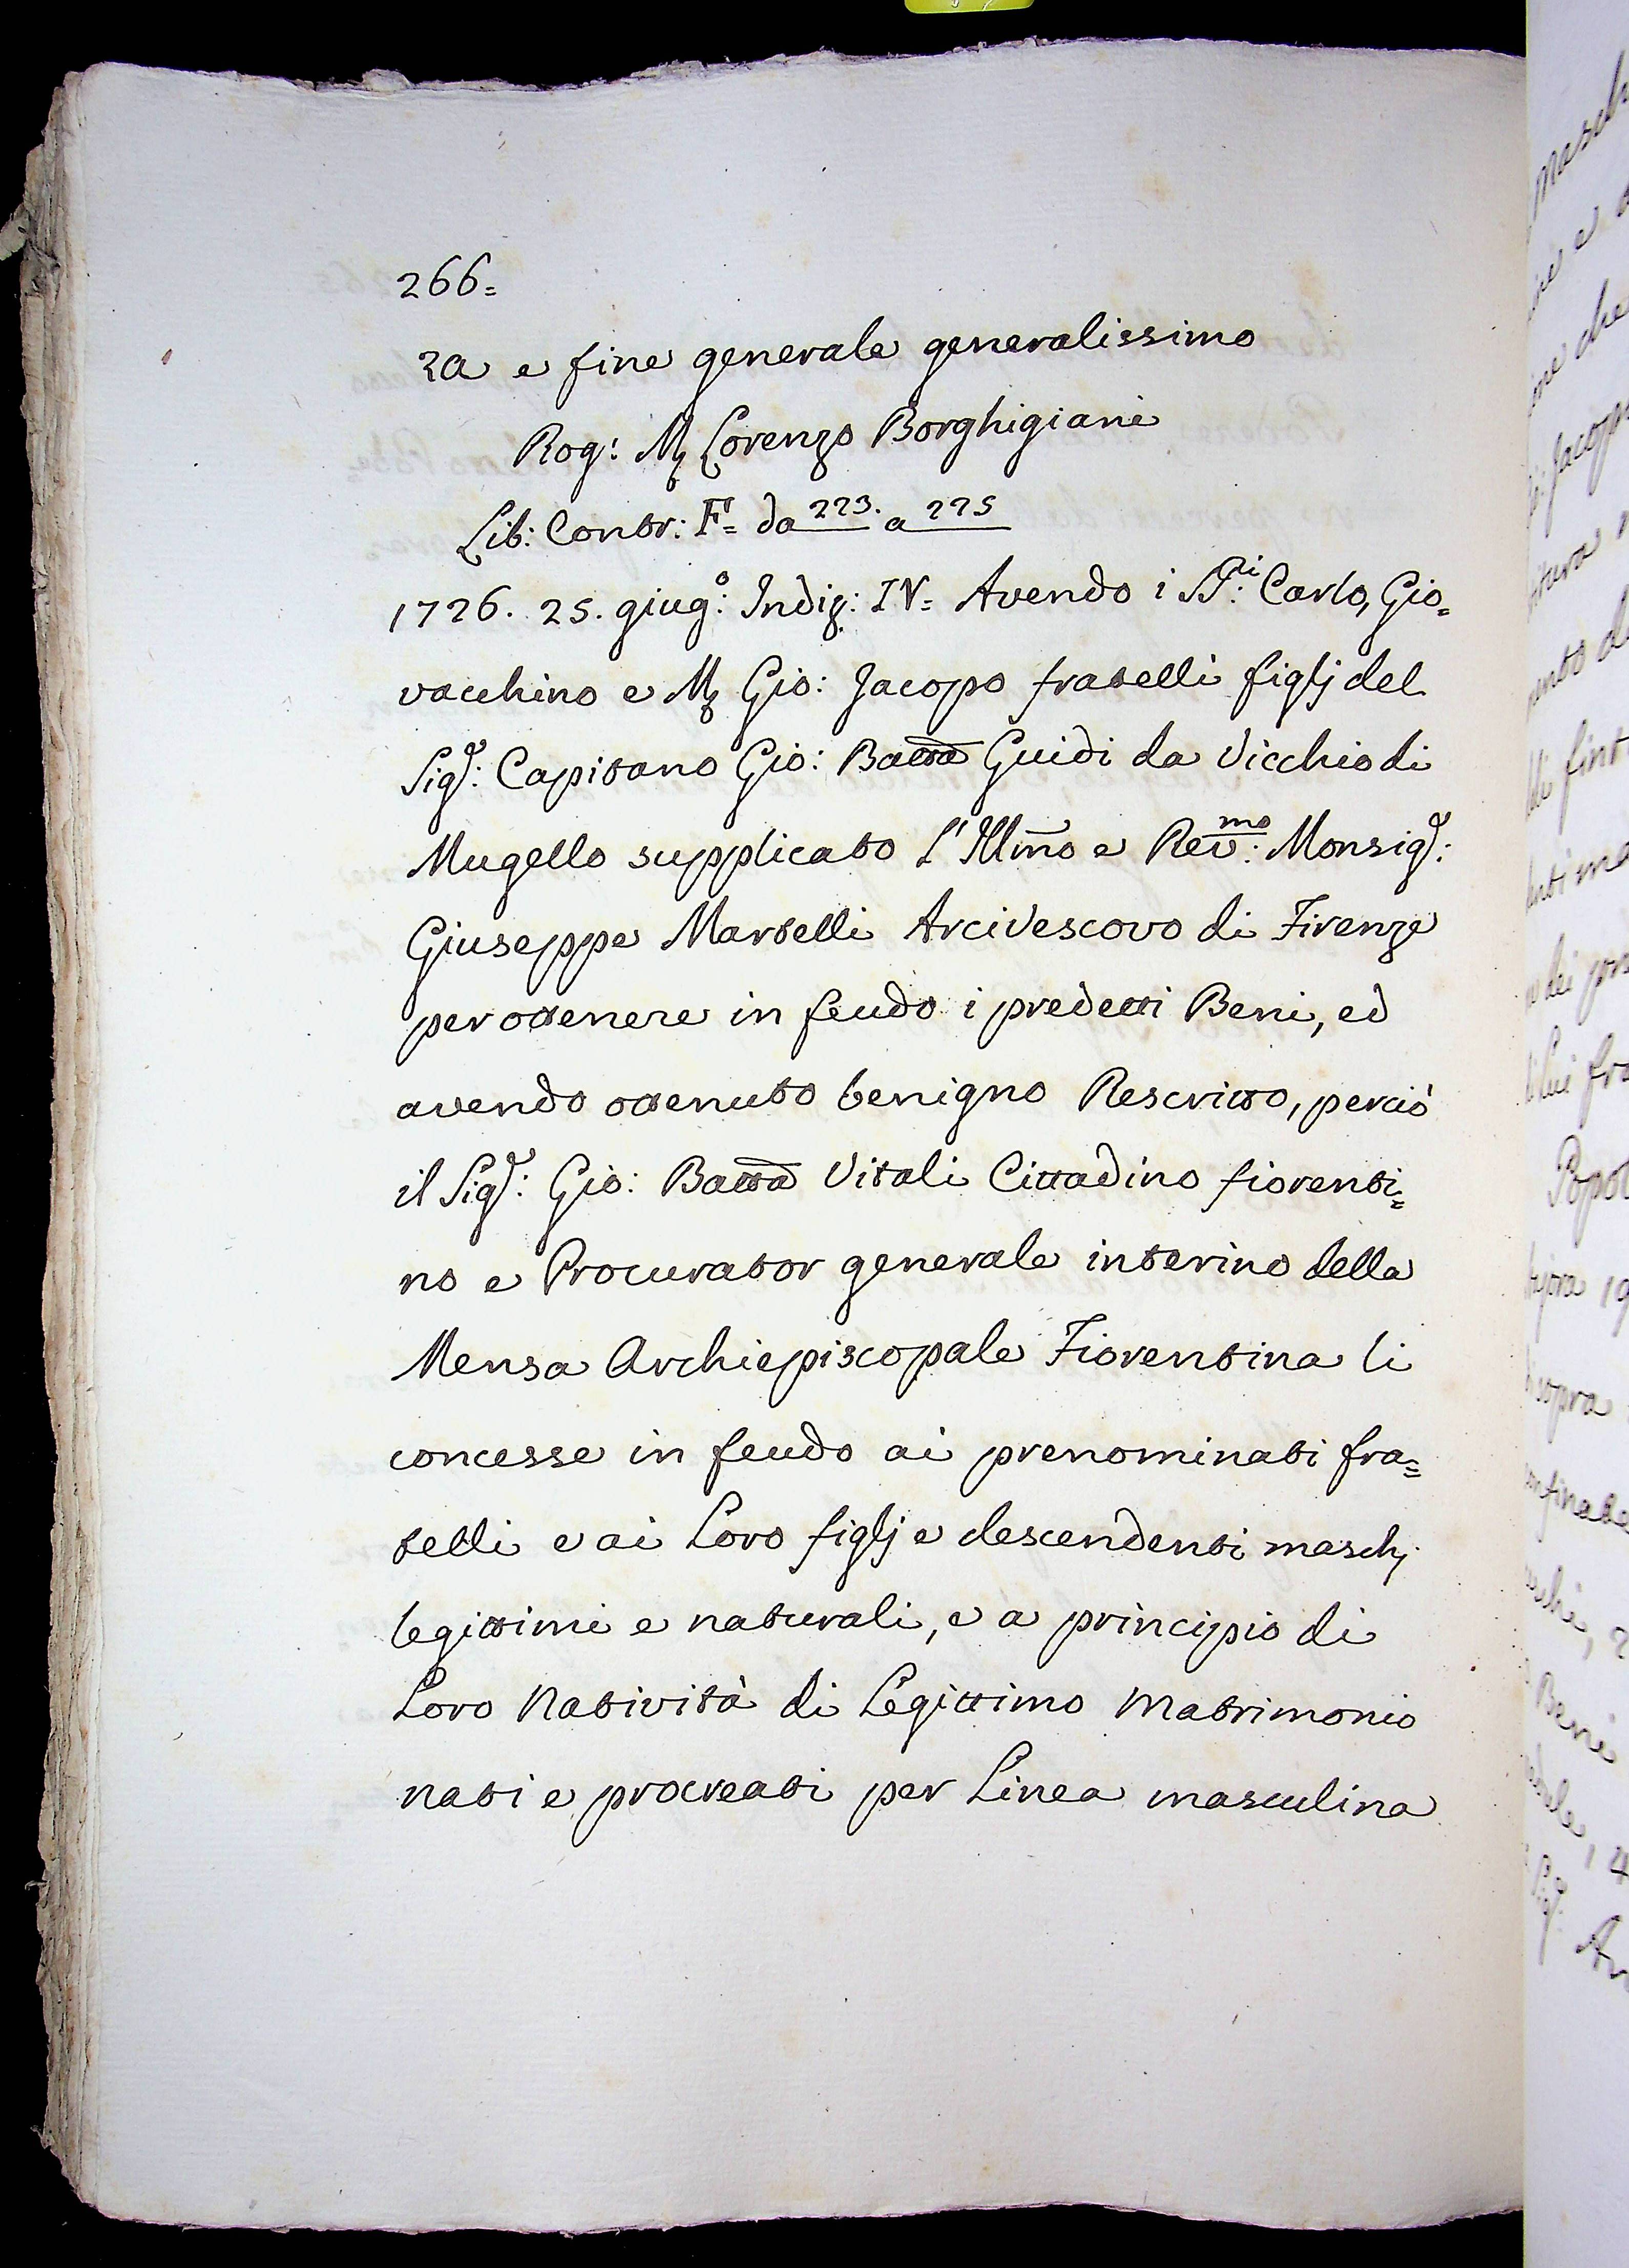 266=
za e fine generale generalissimo
Rog: Mz Lorenzo Borghigiani
Lib: Contr: F= da 223. a 225
1726. 25. giug:o Indiz: IV= Avendo i SS:ri Carlo, Gio=
vacchino e Mz Gio: Jacopo fratelli figlj del
Sigr: Capitano Gio: Batta Guidi da Vicchio di
Mugello supplicato l'Illmo e Rev:mo Monsigr:
Giuseppe Martelli Arcivescovo di Firenze
per ottenere in feudo i predetti Beni, ed
avendo ottenuto benigno Rescritto, perciò
il Sigr: Gio: Batta Vitali Cittadino fiorenti=
no e Procurator generale interino della
Mensa Archiepiscopale Fiorentina li
concesse in feudo ai prenominati fra=
telli e ai Loro figlj e descendenti maschj
legittimi e naturali, e a principio di
Loro Natività di Legittimo Matrimonio
nati e procreati per Linea masculina